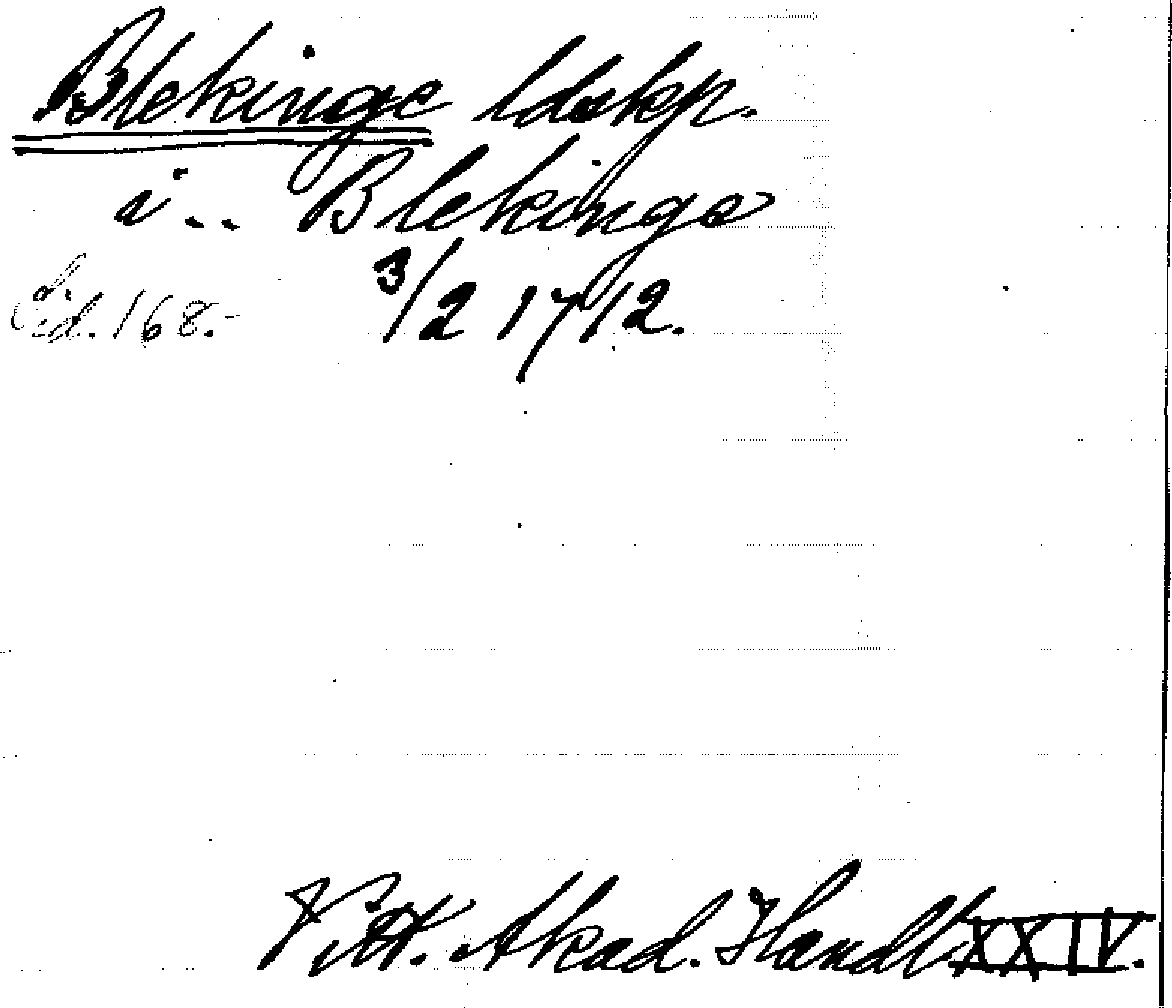 Blekinge ldskp.
i.. Blekinge
Sid. 168.- 3/2 1712.
Vitt. Akad. Handl. XXIV.